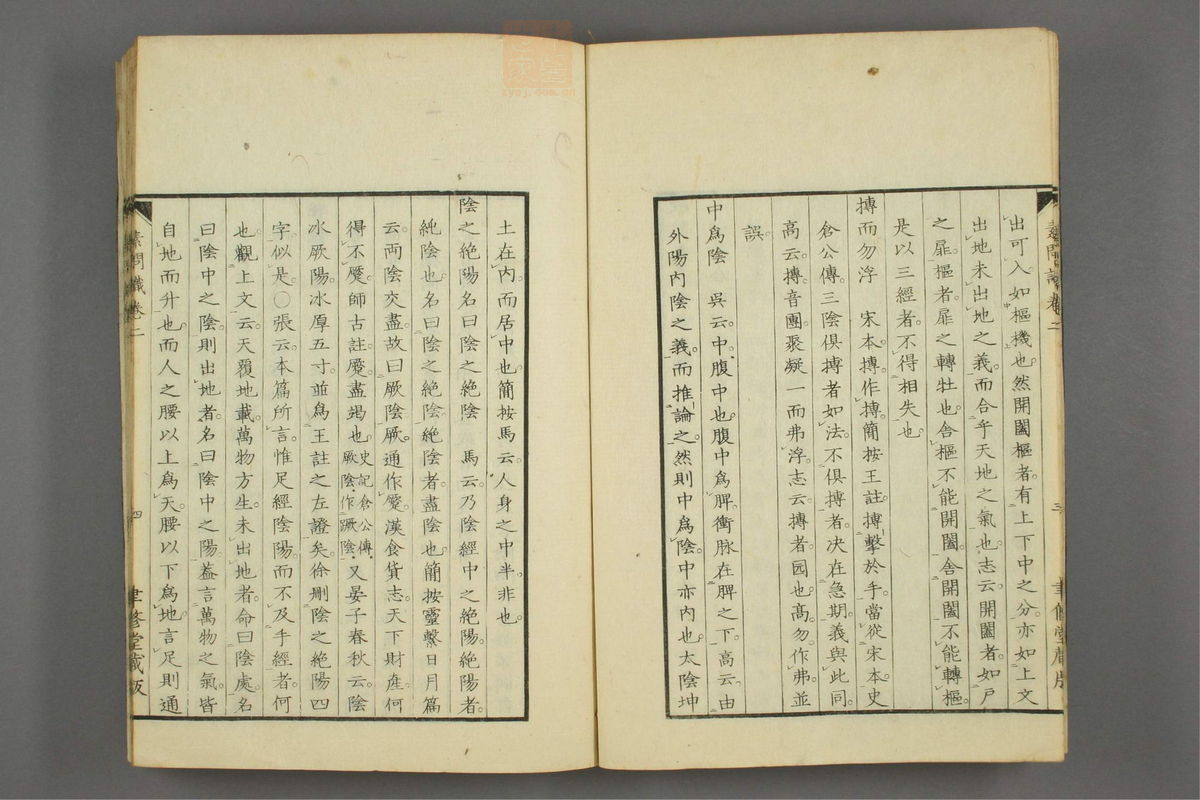 出可入如樞機也然開闔樞者有上下中之分亦如上文
出地未出地之義而合乎天地之氣也志云開闔者如戸
之扉樞者扉之轉牡也舎樞不能開闔舎開闔不能轉樞
是以三經者不得相失也
摶而勿浮　宋本摶作搏簡按王註搏擊於手當從宋本史
倉公傳三陰俱搏者如法不俱搏者决在急期義與此同
高云摶音團聚凝一而弗浮志云摶者园也髙勿作弗並
誤
中爲陰　呉云中腹中也腹中爲脾衝脉在脾之下高云由
外陽内陰之義而推論之然則中爲陰中亦内也太陰坤
素問識卷二
三
聿修堂藏版
土在内而居中也簡按馬云人身之中半非也
陰之絶陽名曰陰之絶陰　馬云乃陰經中之絶陽絶陽者
純陰也名曰陰之絶陰絶陰者盡陰也簡按靈繫日月篇
云両陰交盡故曰厥陰厥通作蹷漢食貨志天下財産何
得不蹷師古註蹷盡竭也史記倉公傳厥陰作蹶陰又晏子春秋云陰
水厥陽冰厚五寸並爲王註之左證矣徐刪陰之絶陽四
字似是○張云本篇所言惟足經陰陽而不及手經者何
也觀上文云天覆地載萬物方生未出地者命曰陰處名
曰陰中之陰則出地者名曰陰中之陽葢言萬物之氣皆
自地而升也而人之腰以上爲天腰以下爲地言足則通
素問識卷二
四
聿修堂藏版